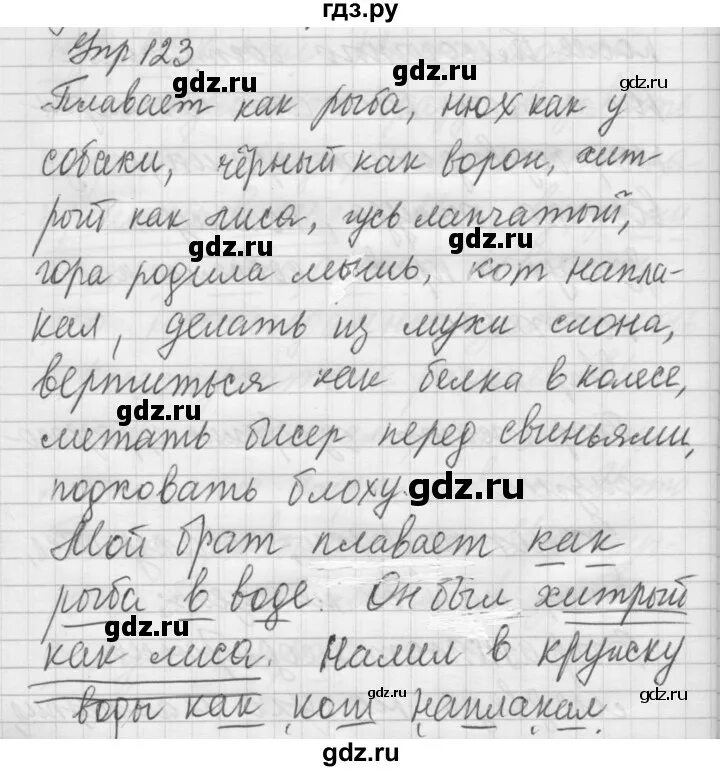 гдз.ру
Упр 123
gdz.ru gdz.ru
Плавает как рыба, нюх как у
gdz.ru
собаки, чёрный как ворон, хит-
рый как лиса, гусь лапчатый,
gdz.ru gdz.ru
гора родила мышь, кот напла-
кал, делать из мухи слона,
вертиться как белка в колесе,
gdz.ru
метать бисер перед свиньями,
подковать блоху.
gdz.ru
Мой брат плавает как
рыба в воде. Он был хитрый
gdz.ru
как лиса. Налил в кружку
gdz.ru gdz.ru
воды как кот наплакал.
gdz.ru